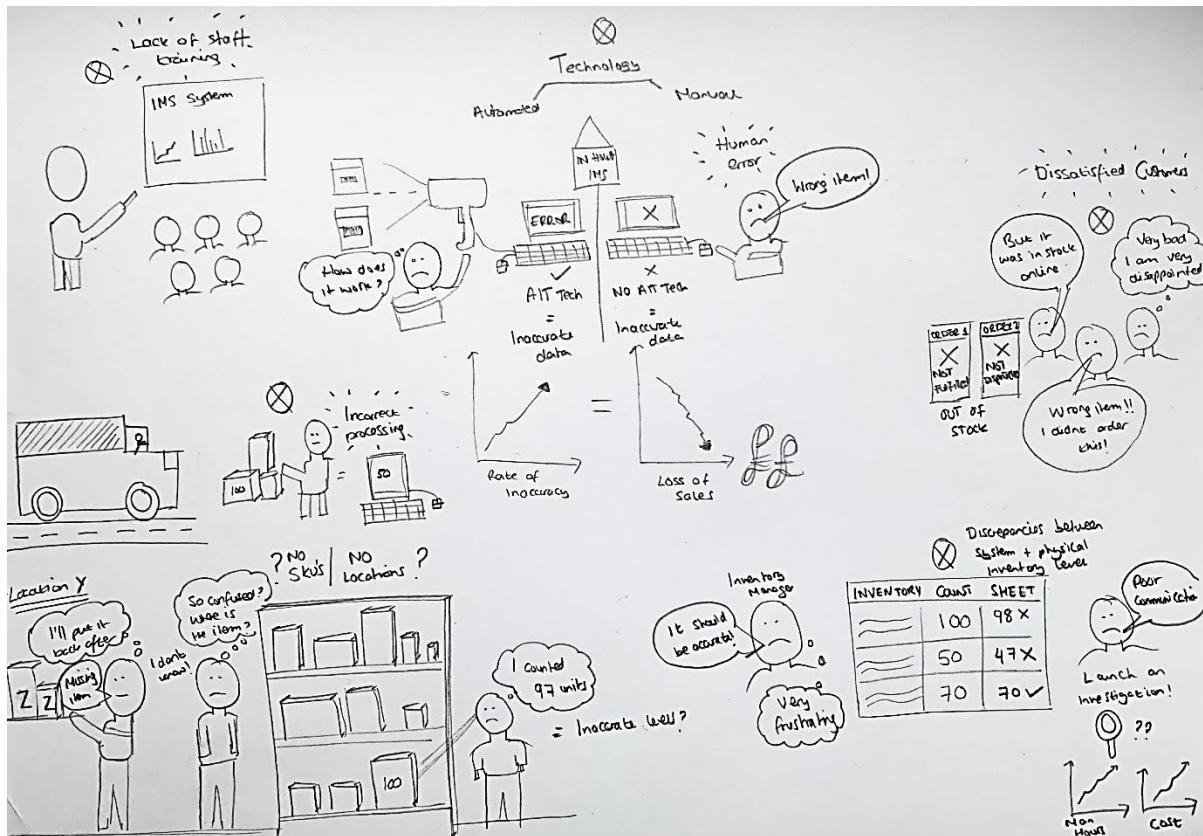 Lack of staff
training
IMS System
Technology
Automated
Manual
IN HOUSE
IMS
Human
error
Wrong item!
ERROR
X
How does
it work?
✓
AIT Tech
=
Inaccurate
data
X
NO AIT Tech
=
Inaccurate
data
Dissatisfied Customers
But it
was in stock
online.
Very bad
I am very
disappointed
ORDER 1
X
NOT
ORDER 2
X
NOT
OUT OF
STOCK
Wrong item!!
I didnt order
this!
Incorrect
processing
100
=
50
Rate of
Inaccuracy
=
Loss of
Sales
££
Location Y
I'll put it
back after
Missing
item
Z
Z
So confused?
is
item?
I dont
know!
? NO
SKUs
NO
Locations ?
100
I counted
97 units
= Inaccurate level?
Inventory
Manager
It should
be accurate!
Very
frustrating
Discrepancies between
System + physical
Inventory level
INVENTORY COUNT SHEET
100 98 X
50 47 X
70 70 ✓
Poor
Communication
Launch an
investigation!
??
Man
Hours
Cost